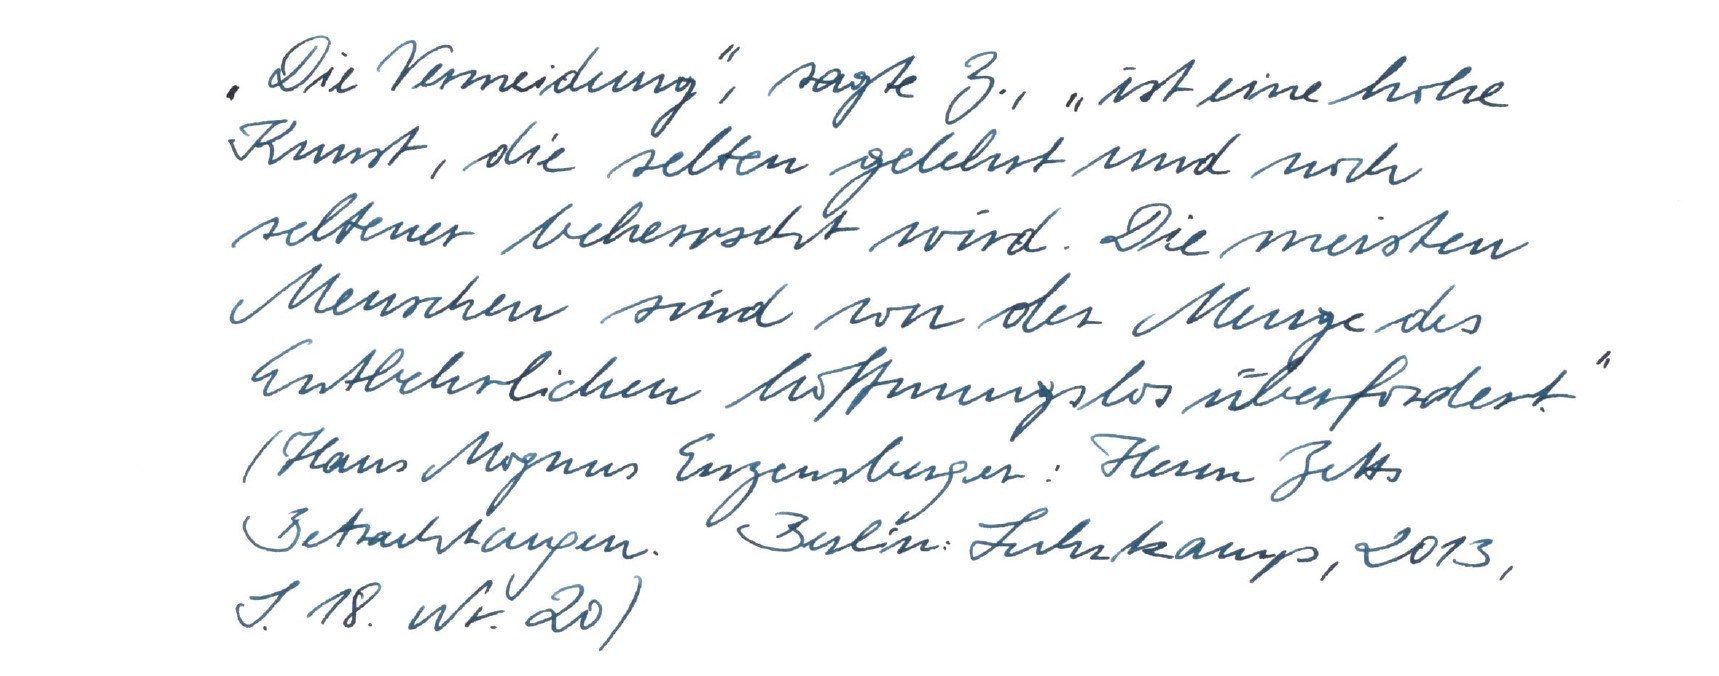 „Die Vermeidung“, sagte Z., „ist eine hohe
Kunst, die selten gelehrt und noch
seltener beherrscht wird. Die meisten
Menschen sind von der Menge des
Entbehrlichen hoffnungslos überfordert.“
(Hans Magnus Enzensberger: Herrn Zetts
Betrachtungen. Berlin: Suhrkamp, 2013,
S. 18. Nr. 20)